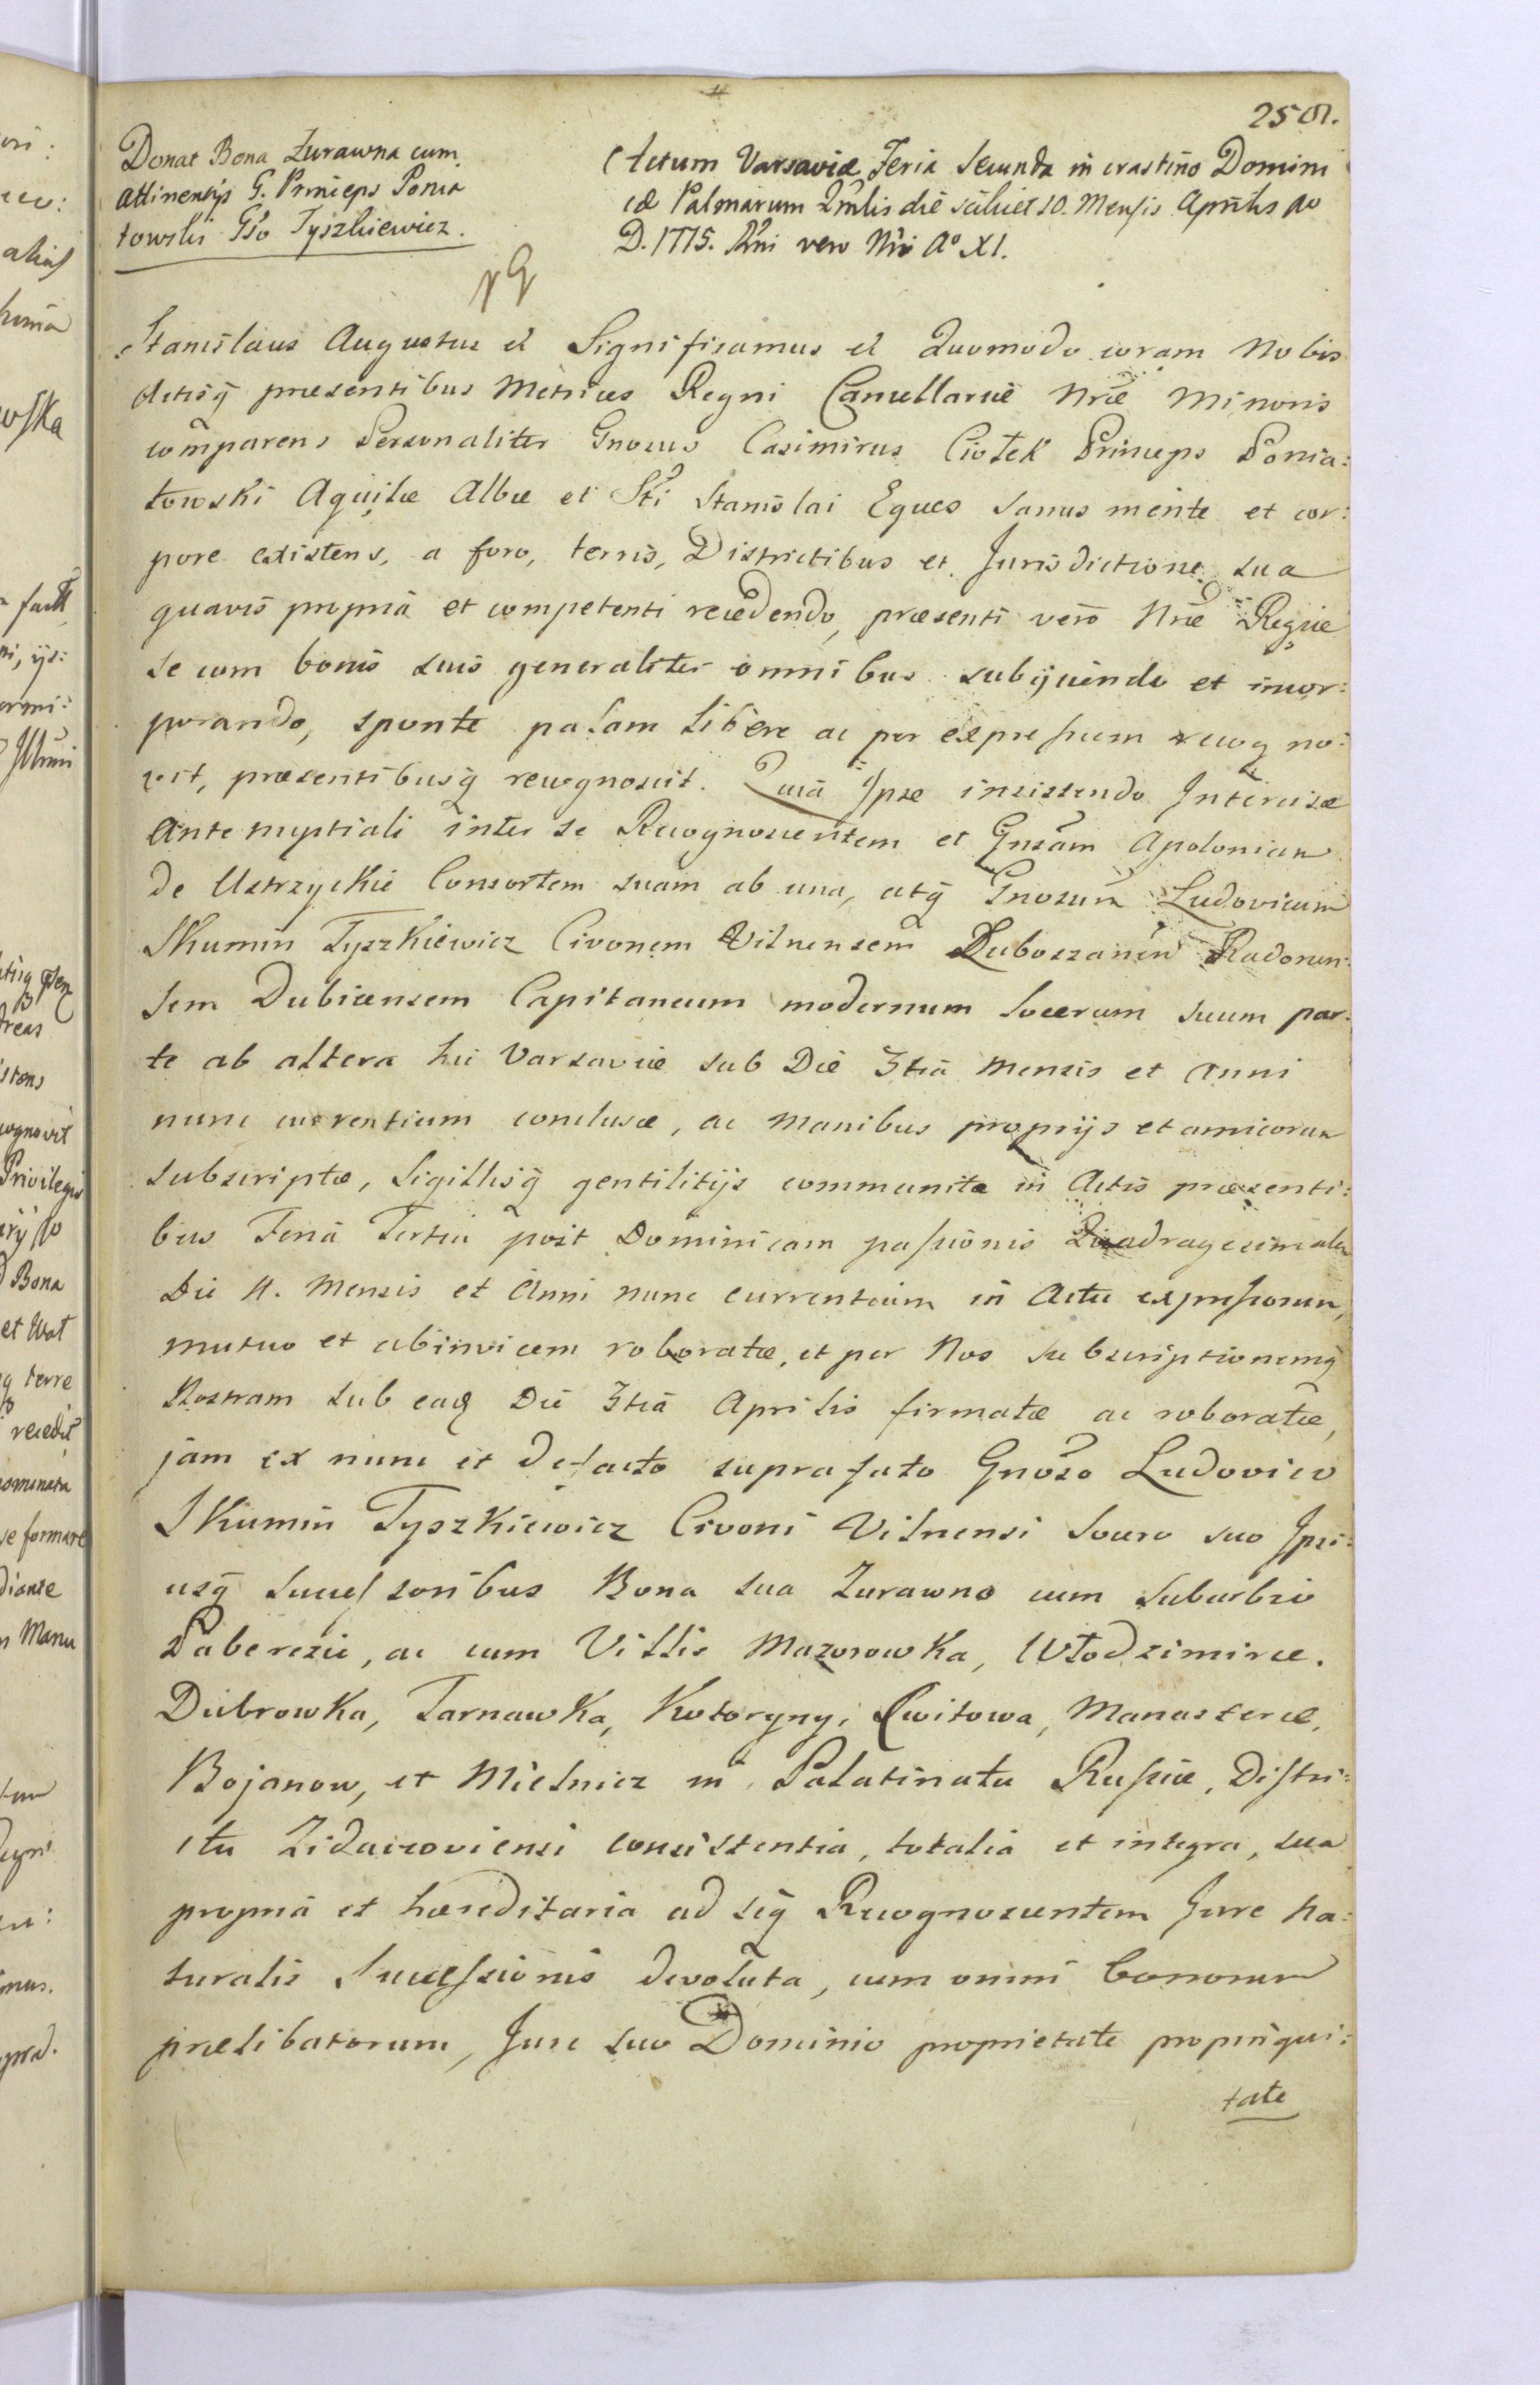 Donat Bona Żurawna cum
attinentijs G. Princeps Ponia
towski Gso Tyszkiewicz.
Actum Varsaviæ Feria Secunda in crastino Domini
cæ Palmarum Qmlis die scilicet 10. Mensis Aprilis Ao
D. 1775. Rni vero Nri Ao XI.
Stanislaus Augustus et Significamus et Quomodo coram Nobis
Actisq præsentibus Metrices Regni Cancellariæ Nræ Minoris
comparens Personaliter Gnosus Casimirus Ciołek Princeps Ponia:
towski Aquilæ Albæ et Sti Stanislai Eques sanus mente et cor:
pore existens, a foro, terris, Districtibus et Jurisdictione sua
quavis propria et competenti recedendo, præsenti vero Nræ Regiæ
se cum bonis suis generaliter omnibus subijciendo et incor:
porando, sponte palam libere ac per expressum recog no:
vit, præsentibusq recognoscit. Quia Ipse insistendo Intercisæ
Antenuptiali inter se Recognoscentem et Gnsam Apoloniam
de Ustrzyckie Consortem suam ab una, atq Gnosum Ludovicum
Skumin Tyszkiewicz Civonem Vilnensem Luboszanen Radoszn:
sem Dubicensem Capitaneum modernum Socerum suum par:
te ab altera hic Varsaviæ sub Die 3tia Mensis et Anni
nunc currentium conclusæ, ac Manibus proprijs et amicorum
subscriptæ, Sigillisq gentilitijs communitæ in Actis præsenti:
bus Feria Tertia post Dominicam passionis Quadragesimalem
Die 4. Mensis et Anni nunc currentium in Actu expressorum,
mutuo et abinvicem roboratæ, et per Nos subscriptionemq
Nostram sub eadq Die 3tia Aprilis firmatæ ac roboratæ,
jam ex nunc et defacto suprafato Gnoso Ludovico
Skumin Tyszkiewicz Civoni Vilnensi Socero suo Ipsi:
usq Successoribus Bona sua Zurawno cum Suburbio
Zaberezie, ac cum Villis Mazorowka, Włodzimirce.
Dubrowka, Tarnawka, Kotoryny, Cwitowa, Manasterce,
Bojanow, et Mielnicz in Palatinatu Russiæ, Distri:
ctu Zidaczoviensi consistentia, totalia et integra, sua
propria et hæreditaria ad seq Recognoscentem Jure na:
turalis Successionis devoluta, cum omni bonorum
prælibatorum, Jure suo Dominio proprietate propinqui:
tate